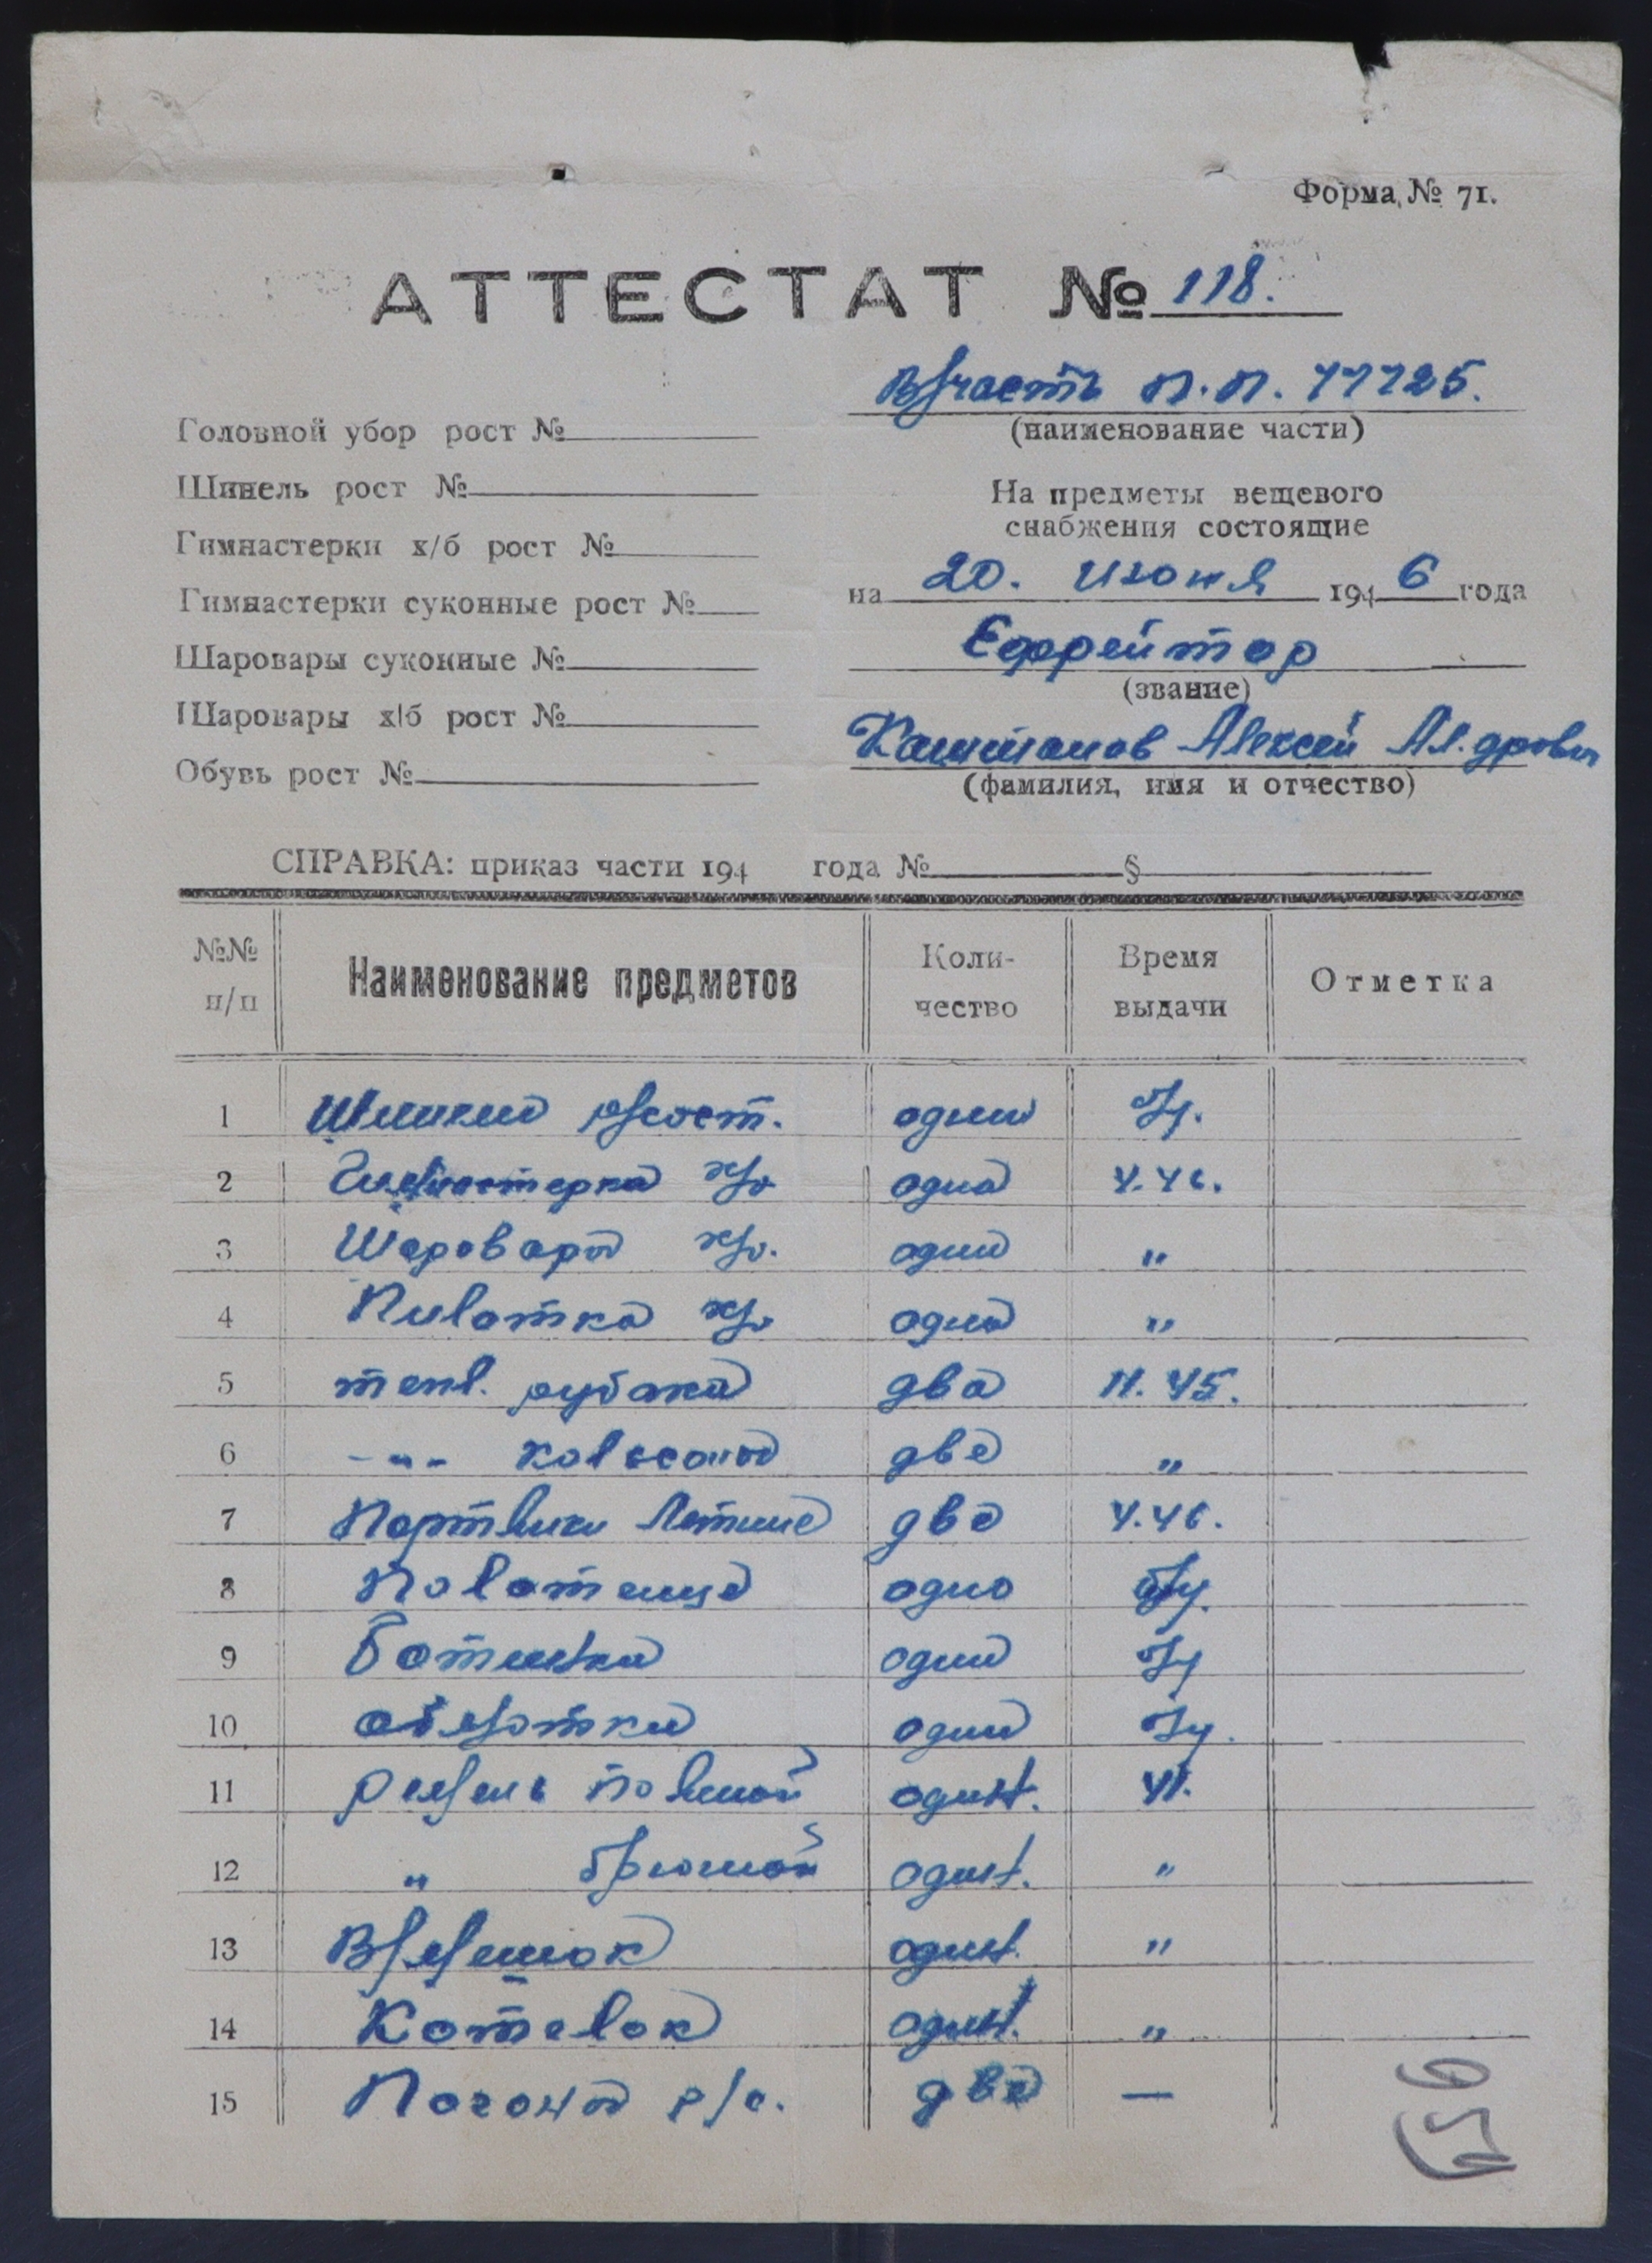 Форма № 71.
АТТЕСТАТ № 118.
В/часть п.п. 77725.
(наименование части)
Головной убор рост №
Шинель рост №
Гимнастерки х/б рост №
Гимнастерки суконные рост №
Шаровары суконные №
Шаровары х/б рост №
Обувь рост №
На предметы вещевого
снабжения состоящие
на 20. Июня 1946 года
Ефрейтор
(звание)
Каштанов Алексей Ал.дрович
(фамилия, имя и отчество)
СПРАВКА: приказ части 194 года № §
№№ п/п Наименование предметов Коли-чество Время выдачи Отметка
1 один б/у.
2 Гимнастерка х/б одна 4.46.
3 Шаровары х/б. один "
4 Пилотка х/б одна "
5 тепл. рубаха два 11.45.
6 -"- кальсоны две "
7 Портянки летние две 4.46.
8 Полотенце одно б/у.
9 Ботинки один б/у
10 обмотки один б/у.
11 Ремень поясной один.
12 " брючной один. "
13 В/мешок один. "
14 Котелок один. "
15 Погоны р/с. две —